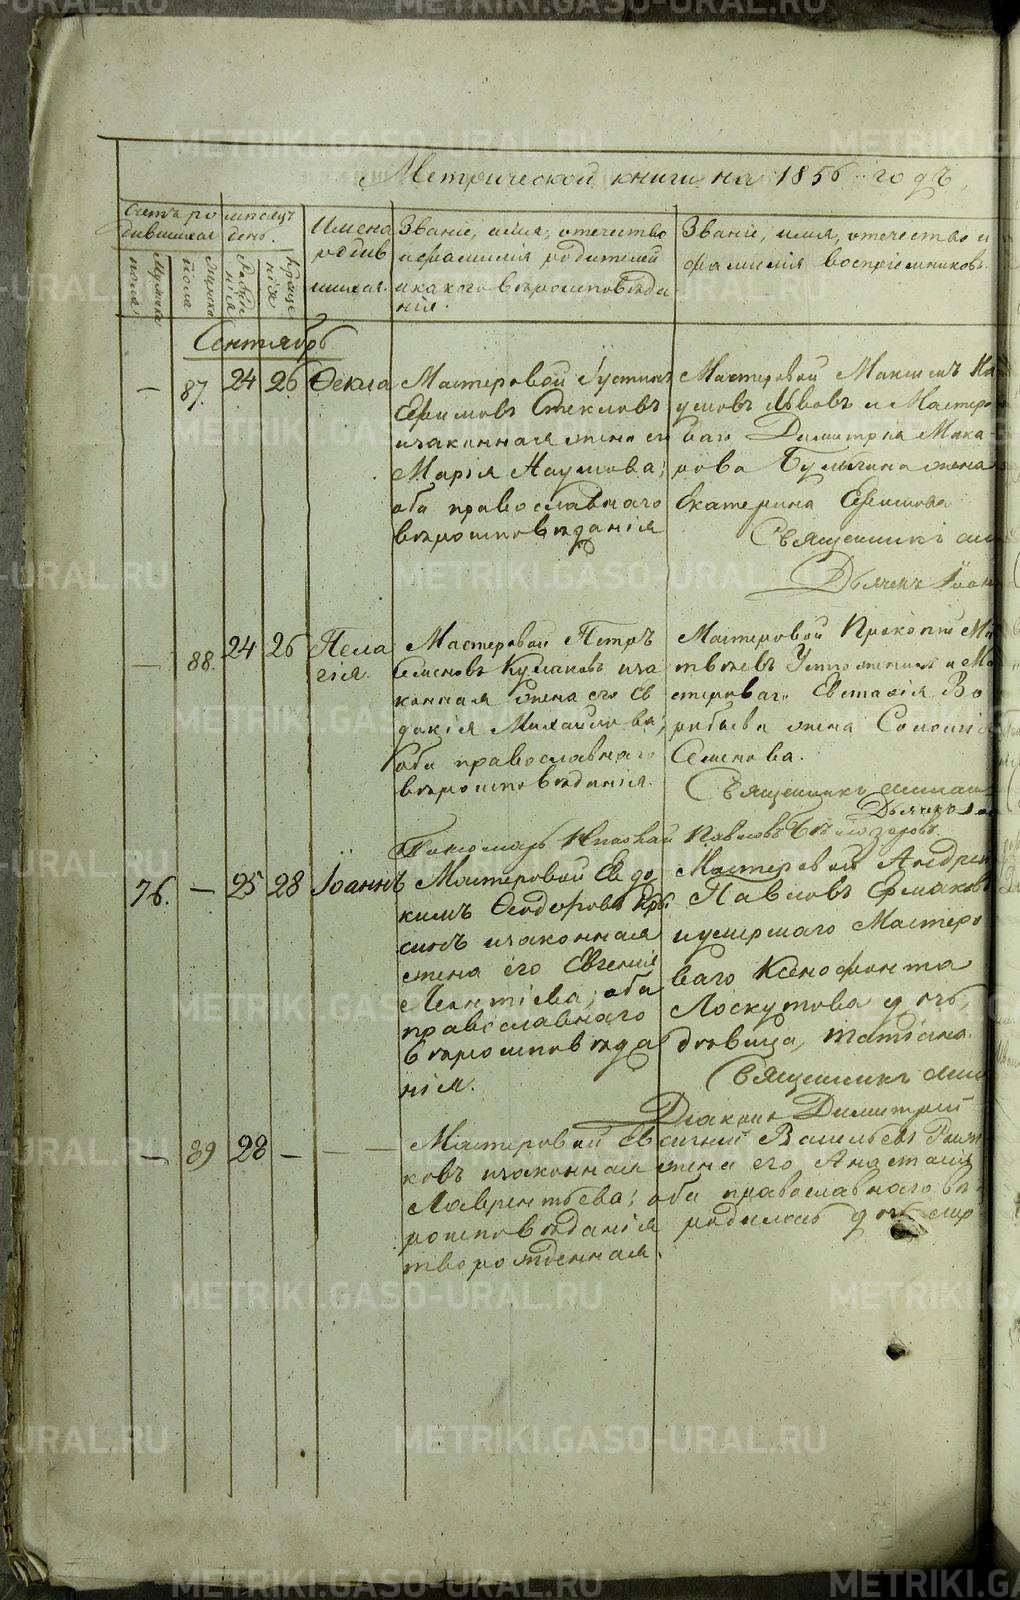 METRIKI.GASO-URAL.RU
Метрической книги на 1856 годъ,
Счетъ ро
дившихся
мужска
пола
женска
пола
месяцъ
день.
рожде
нія
креще
нія
Имена
родив
шихся.
Званіе, имя, отечество
и фамилія родителей
и какого вѣроисповѣда
нія.
Званіе, имя, отечество и
фамилія воспріемниковъ.
Сентябрь
— 87. 24 26 Ѳекла
Мастеровой Іустинъ
Ефимовъ Стекловъ
и законная жена его
Марія Наумова;
оба православнаго
вѣроисповѣданія
Мастеровой Максимъ На
умовъ Львовъ и Мастеро
ваго Димитрія Мака
рова Булыгина жена
Екатерина Ефимова
Священникъ
Дьячекъ Іоан
— 88. 24 26 Пела
гія.
Мастеровой Петръ
Семеновъ Кулаковъ и за
конная жена его Ев
докія Михайлова;
оба православнаго
вѣроисповѣданія.
Мастеровой Прокопій Ма
твѣевъ и Ма
стероваго Евстафія Во
робьева жена Соломія
Семенова.
Священникъ
Дьячекъ
Пономарь Николай Павловъ Бѣлозеровъ.
76. — 25 28 Іоаннъ
Мастеровой Евдо
кимъ Ѳеодоровъ
и законная
жена его Евгенія
Леонтіева; оба
православнаго
вѣроисповѣда
нія.
Мастеровой Андрей
Павловъ Ермаковъ
и умершаго Мастеро
ваго Ксенофонта
Лоскутова дочь,
вдовица, Татіана.
Священникъ
Діаконъ Димитрій
— 89 28 — — —
Мастеровой Евгеній Васильевъ
ковъ и законная жена его Анастасія
Лаврентьева; оба православнаго вѣ
роисповѣданія родилась дочь мер
творожденная.